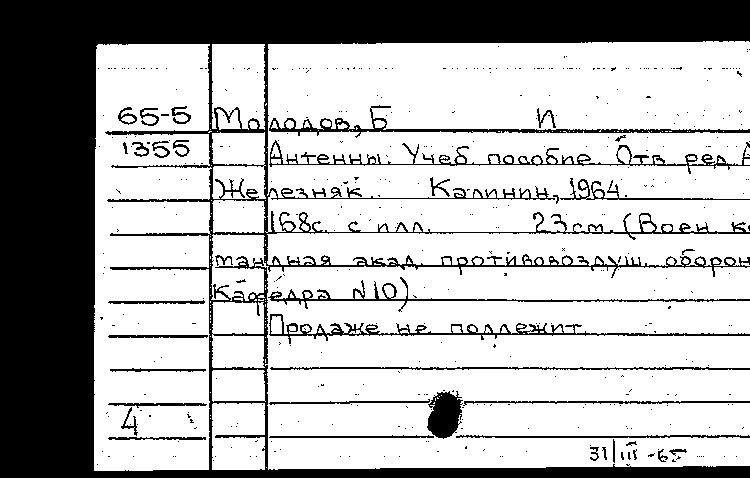 65-5 Молодов, Б П
1355 Антенны. Учеб. пособие. Отв. ред. А
Железняк. Калинин, 1964.
168с. с илл. 23см. (Воен. ко
мандная акад. противовоздуш. оборон
Кафедра №10).
Продаже не подлежит
4
31/III-65